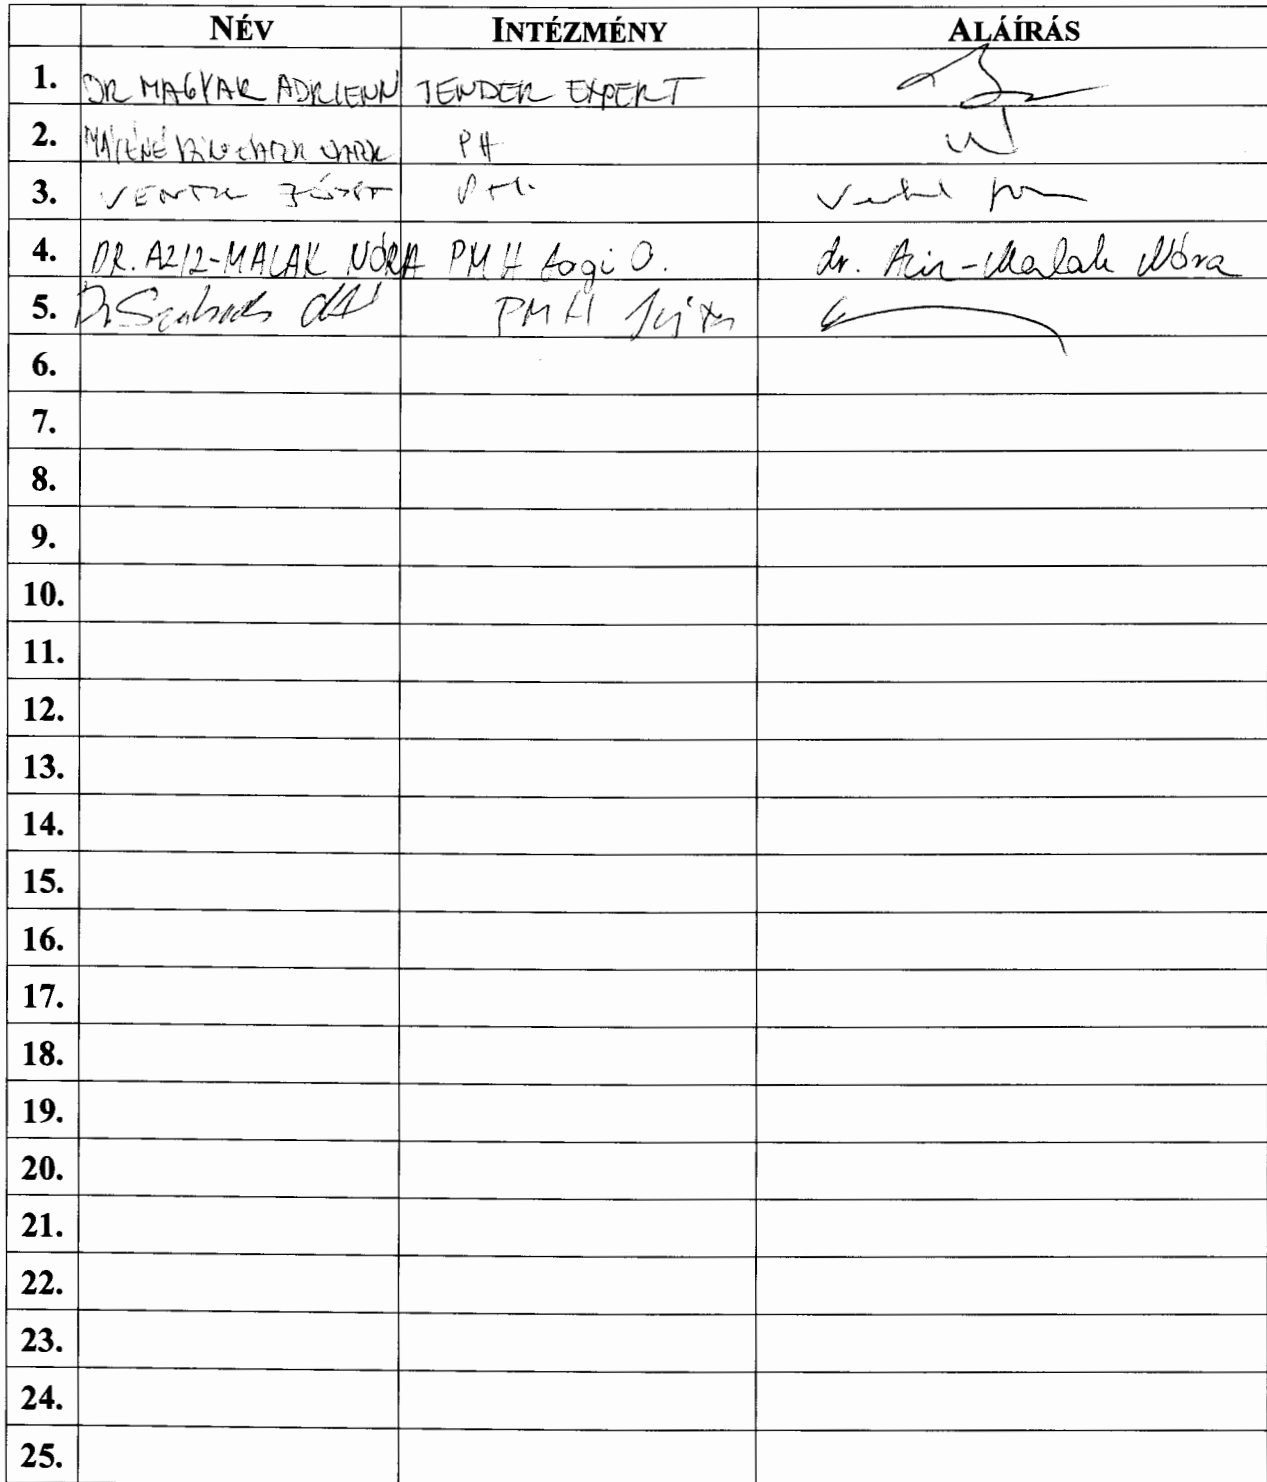 NÉV INTÉZMÉNY ALÁÍRÁS
1. DR MAGYAR ADRIENN TENDER EXPERT
2. PH
3. JÓZSEF PH.
4. DR. AZIZ-MALAK NÓRA PMH Jogi O. dr. Aziz-Malak Nóra
5. Dr Szabados PMH
6.
7.
8.
9.
10.
11.
12.
13.
14.
15.
16.
17.
18.
19.
20.
21.
22.
23.
24.
25.